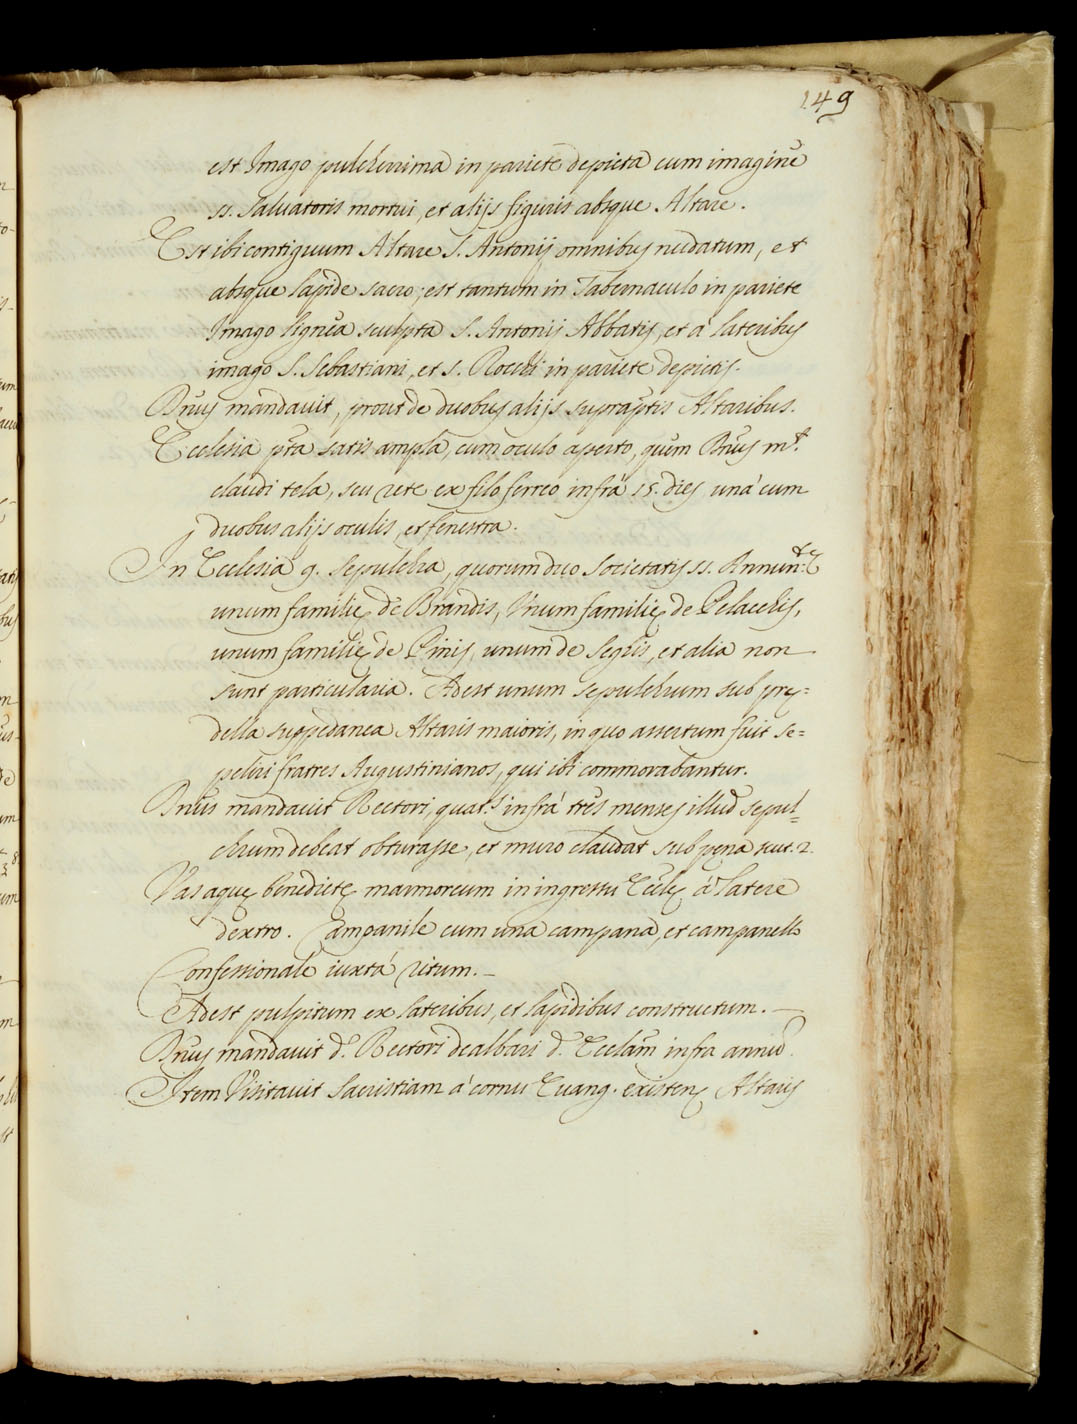 149
est Imago pulcherrima in pariete depicta cum imagine
ss. Salvatoris mortui, et alijs figuris absque Altare.
Est ibi contiguum Altare S. Antonij omnibus nudatum, et
absque lapide sacro; est tantum in Tabernaculo in pariete
Imago lignea sculpta S. Antonij Abbatis, et à lateribus
imago S. Sebastiani, et S. Rocchi in pariete depictis.
Dnus mandavit, prout de duobus alijs supraptis Altaribus.
Ecclesia pta satis ampla, cum oculo aperto, quem Dnus mt.
claudi tela, seu rete ex filo ferreo infrà 15. dies unà cum
duobus alijs oculis, et fenestra.
In Ecclesia 9. Sepulchra, quorum duo Societatis ss. Annuntę
unum familię de Brandis, Unum familię de Pelacchis,
unum familię de Pinis, unum de Seghis, et alia non
sunt particularia. Adest unum sepulchrum sub prę=
della suppedanea Altaris maioris, in quo assertum fuit se=
peliri fratres Augustinianos, qui ibi commorabantur.
Dnus mandavit Rectori, quats infrà tres menses illud sepul=
chrum debeat obturasse, et muro claudat sub pena scut. 2.
Vas aquę benedictę marmoreum in ingressu Ecclę à latere
dextro. Campanile cum una campana, et campanello
Confessionale iuxtà ritum. –
Adest pulpitum ex lateribus, et lapidibus constructum. –
Dnus mandavit d. Rectori dealbari d. Ecclam infra annud.
Item Visitavit Sacristiam à cornu Evang. existenę Altaris